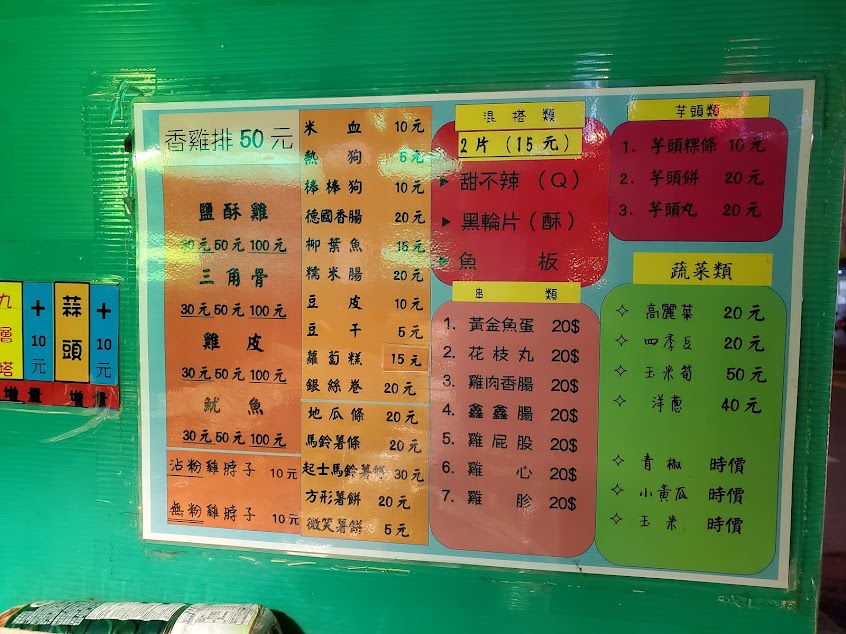 香雞排 50 元
鹽酥雞
30元 50元 100元
三角骨
30元 50元 100元
雞皮
30元 50元 100元
魷魚
30元 50元 100元
沾粉雞脖子 10元
無粉雞脖子 10元
米血 10元
熱狗 5元
棒棒狗 10元
德國香腸 20元
柳葉魚 15元
糯米腸 20元
豆皮 10元
豆干 5元
蘿蔔糕 15元
銀絲卷 20元
地瓜條 20元
馬鈴薯條 20元
起士馬鈴薯條 30元
方形薯餅 20元
微笑薯餅 5元
混搭類
2片（15元）
甜不辣（Q）
黑輪片（酥）
魚板
串類
1. 黃金魚蛋 20$
2. 花枝丸 20$
3. 雞肉香腸 20$
4. 鑫鑫腸 20$
5. 雞屁股 20$
6. 雞心 20$
7. 雞胗 20$
芋頭類
1. 芋頭粿條 10元
2. 芋頭餅 20元
3. 芋頭丸 20元
蔬菜類
高麗菜 20元
四季豆 20元
玉米筍 50元
洋蔥 40元
青椒 時價
小黃瓜 時價
玉米 時價
九層塔
+10元
增量
蒜頭
+10元
增量